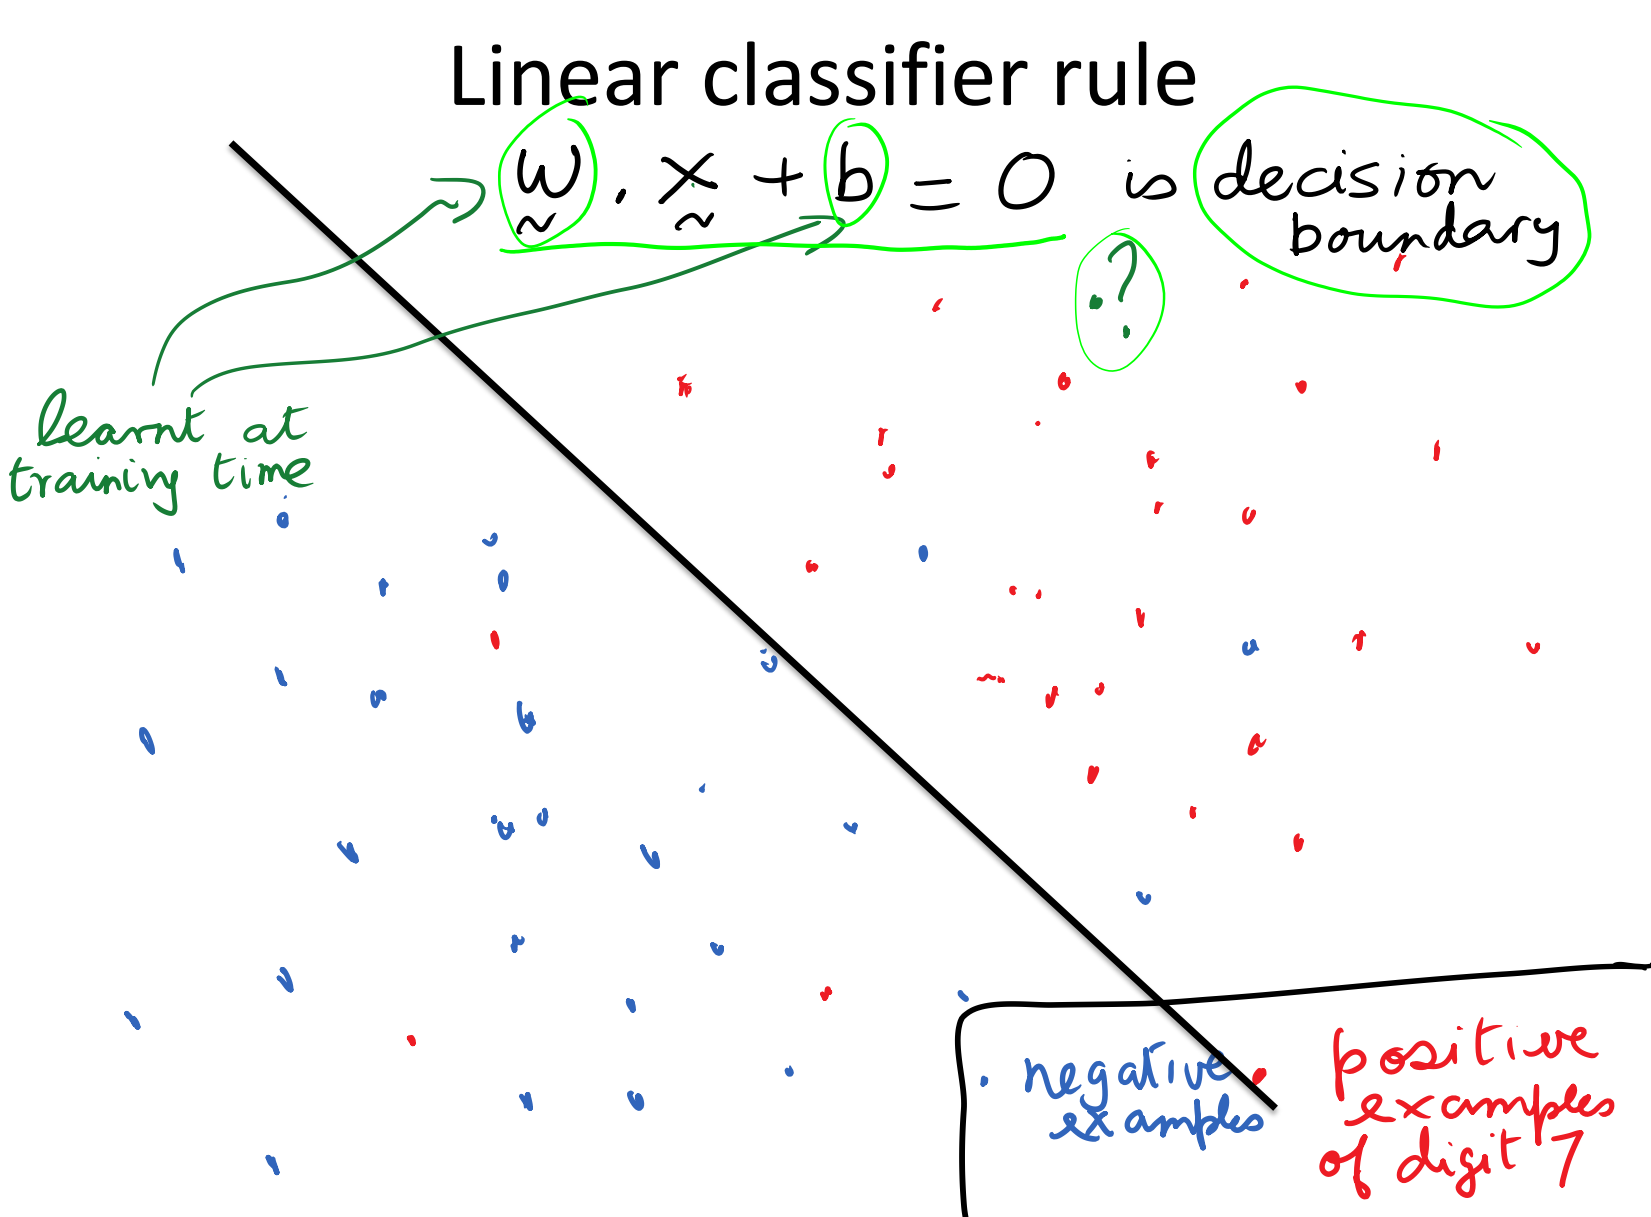 Linear classifier rule
w . x + b = 0 is decision
boundary
?
learnt at
training time
negative
examples
positive
examples
of digit 7